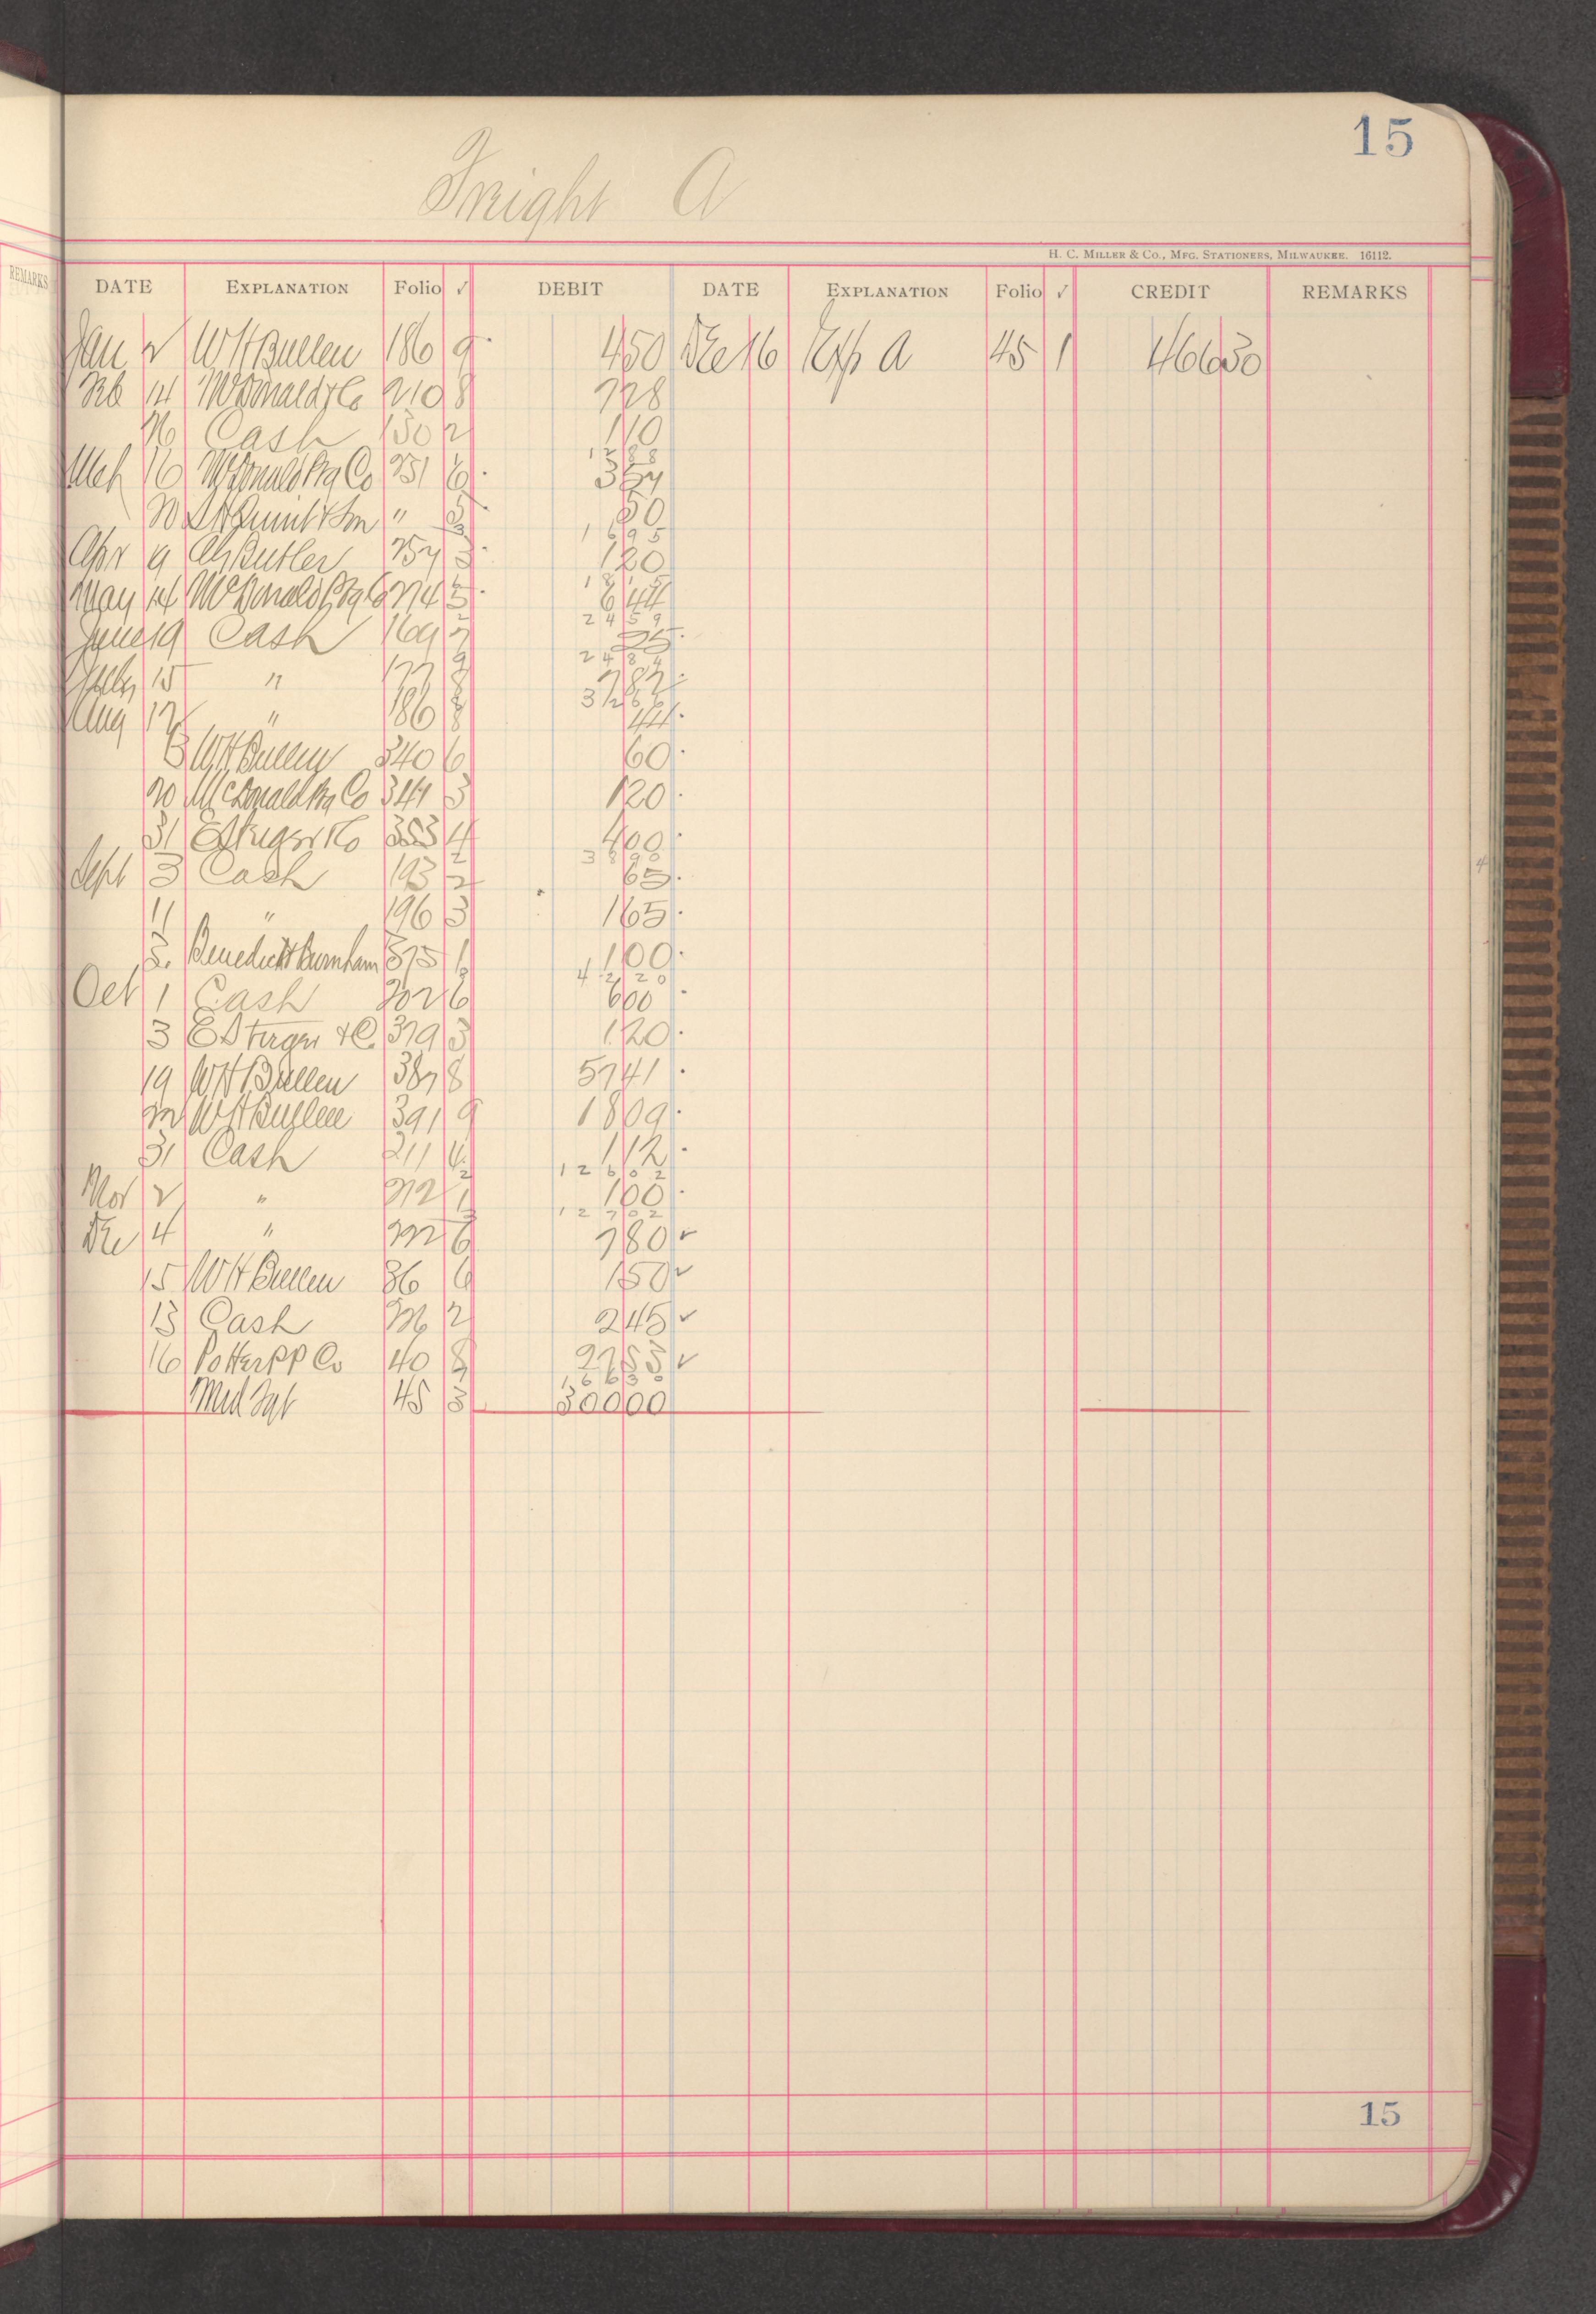 15
Freight A
H. C. MILLER & CO., MFG. STATIONERS, MILWAUKEE. 16112.
REMARKS
DATE EXPLANATION Folio ✓ DEBIT DATE EXPLANATION Folio ✓ CREDIT REMARKS
Jan 2 W H Bullen 186 9 450 Dec 16 Exp A 45 1 46630
Feb 14 McDonald & Co 210 8 728
26 Cash 150 2 110
1288
Mch 16 McDonald Mfg Co 251 6 357
20 " 50
1695
Apr 9 Butler 257 3 120
1815
May 14 McDonald Mfg Co 274 5 644
2459
June 19 Cash 169 25
2484
July 15 " 177 782
3266
Aug 12 " 186 8 44
6 W H Bullen 340 6 60
20 McDonald Mfg Co 341 3 120
31 353 4 400
3890
Sept 3 Cash 193 2 65
11 " 196 3 165
3. Benedict & Burnham 375 1 100
4220
Oct 1 Cash 202 6 600
3 & Co 379 3 120
19 W H Bullen 387 8 5741
22 W H Bullen 391 9 1809
31 Cash 211 4 112
12602
Nov 2 " 212 1 100
12702
Dec 4 " 222 6 780 ✓
15 W H Bullen 36 6 150 ✓
13 Cash 226 2 245 ✓
16 Potter P P Co 40 8 2753 ✓
16630
Med 45 3 30000
15